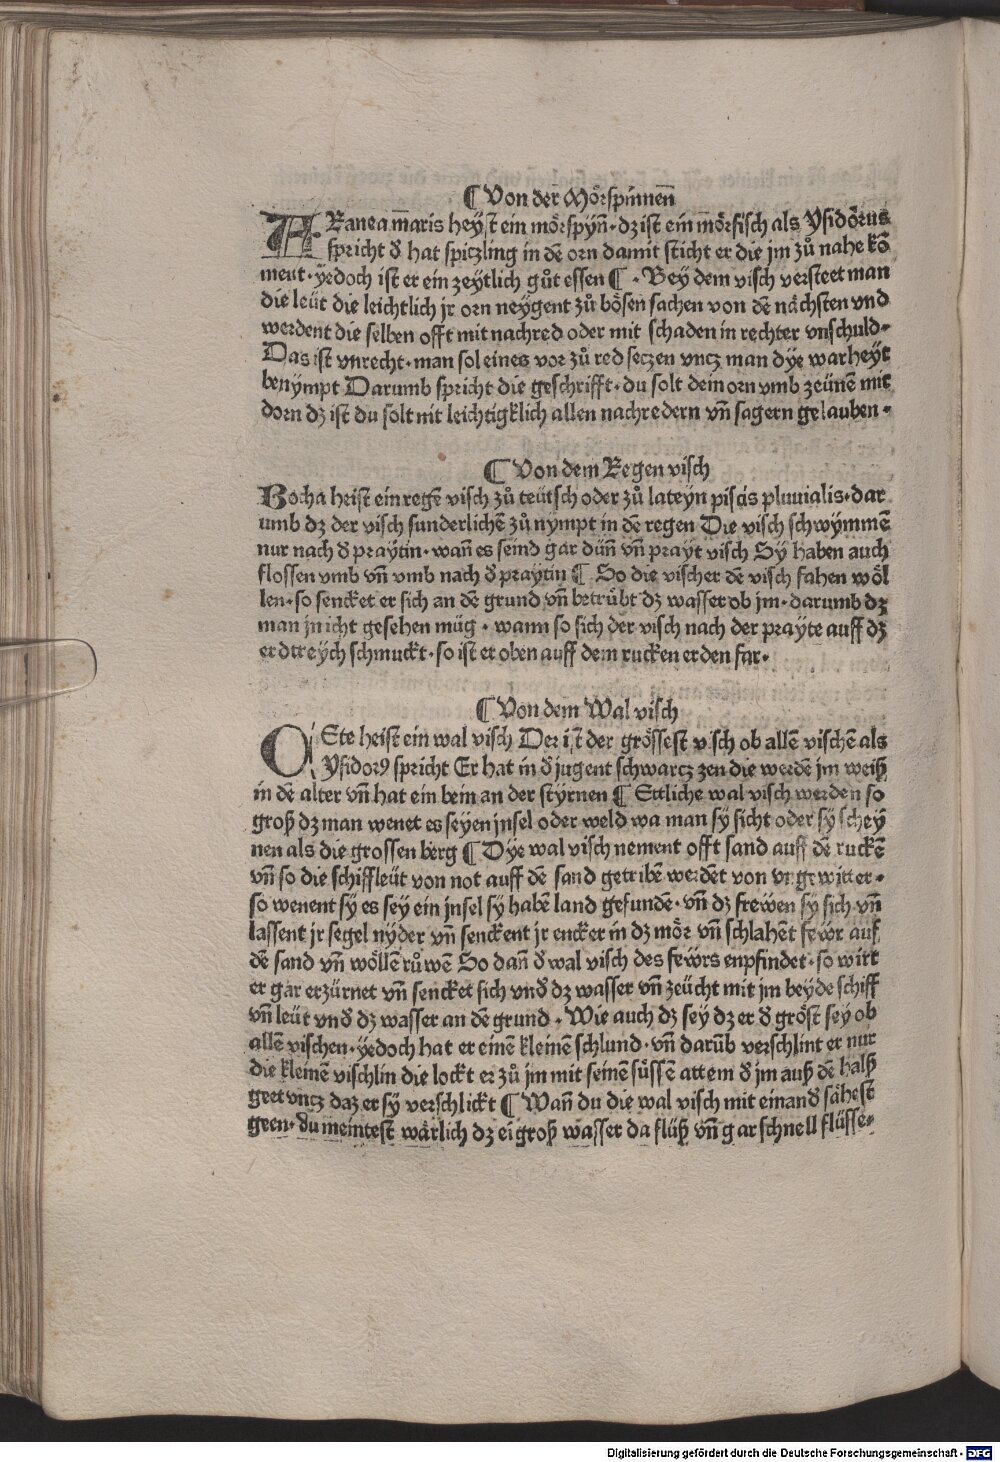 ¶ Von der Mörspinnen̄
ARanea maris heyst ein mörspyn̄ · dz ist ein mörfisch als Ysidörus
spricht đ hat spiczling in dē orn damit sticht er die jm zů nahe kō
ment · yedoch ist er ein zeytlich gůt essen ¶ · Bey dem visch versteet man
die leüt die leichtlich jr orn neygent zů bösen sachen von dē nächsten vnd
werdent die selben offt mit nachred oder mit schaden in rechter vnschuld ·
Das ist vnrecht · man sol eines vor zů red seczen vncz man dye warheyt
benympt Darumb spricht die geschrifft · du solt dein orn vmb zeünē mit
dorn dz ist du solt nit leichtigklich allen nachredern vn̄ sagern gelauben ·
¶ Von dem Regen visch
Bocha heist ein regē visch zů teütsch oder zů lateyn piscis pluuialis · dar
umb dz der visch sunderlichē zů nympt in dē regen Die visch schwymmē
nur nach đ praytin · wan̄ es seind gar dün̄ vn̄ prayt visch Sy haben auch
flossen vmb vn̄ vmb nach đ praytin ¶ So die vischer dē visch fahen wöl
len · so sencket er sich an dē grund vn̄ betrůbt dz wasser ob jm · darumb dz
man jn icht gesehen müg · wann so sich der visch nach der prayte auff dz
erdtreych schmuckt · so ist er oben auff dem rucken erden far ·
¶ Von dem Wal visch
CEte heist ein wal visch Der ist der grössest visch ob allē vischē als
Ysidorꝰ spricht Er hat in đ jugent schwarcz zen die werdē jm weiß
in dē alter vn̄ hat ein bein an der styrnen ¶ Ettliche wal visch werden so
groß dz man wenet es seyen jnsel oder weld wa man sy sicht oder sy schey
nen als die grossen berg ¶ Dye wal visch nement offt sand auff dē ruckē
vn̄ so die schiffleüt von not auff dē sand getribē werdēt von vngewitter ·
so wenent sy es sey ein jnsel sy habē land gefundē · vn̄ dz frewen sy sich vn̄
lassent jr segel nyder vn̄ senckent jr encker in dz mör vn̄ schlahēt fewr auf
dē sand vn̄ wöllē růwē So dan̄ đ wal visch des fewrs enpfindet · so wirt
er gar erzürnet vn̄ sencket sich vnđ dz wasser vn̄ zeücht mit jm beyde schiff
vn̄ leüt vnđ dz wasser an dē grund · Wie auch dz sey dz er đ gröst sey ob
allē vischen · yedoch hat er einē kleinē schlund · vn̄ darūb verschlint er nur
die kleinē vischlin die lockt er zů jm mit seinē süssē attem đ jm auß dē halß
geet vncz daz er sy verschlickt ¶ Wan̄ du die wal visch mit einanđ sähest
geen · du meintest wärlich dz ei groß wasser da flüß vn̄ gar schnell flüsse ·
Digitalisierung gefördert durch die Deutsche Forschungsgemeinschaft - DFG